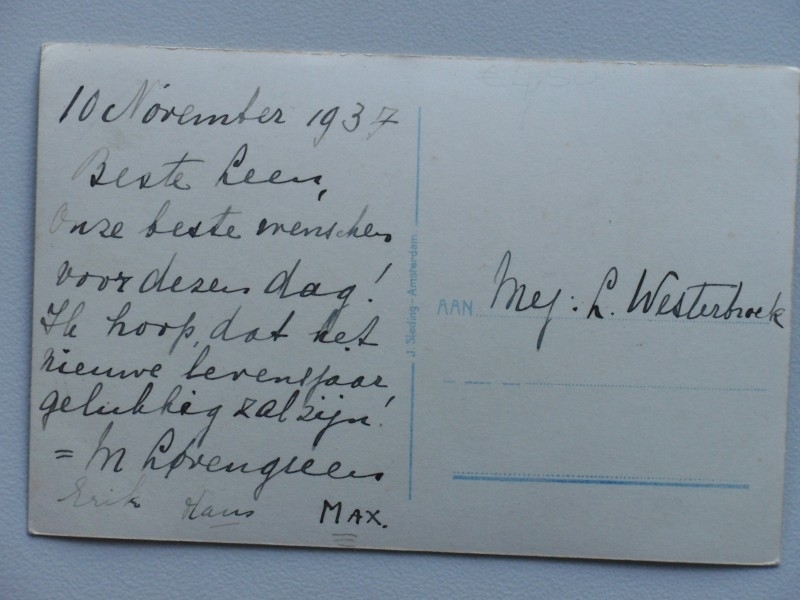 10 November 1937
Beste Leen,
Onze beste wenschen
voor dezen dag!
Ik hoop, dat het
nieuwe levensjaar
gelukkig zal zijn!
= M Lovengreen
Erik Hans MAX.
J. Sleding - Amsterdam
AAN Mej: L. Westerbroek